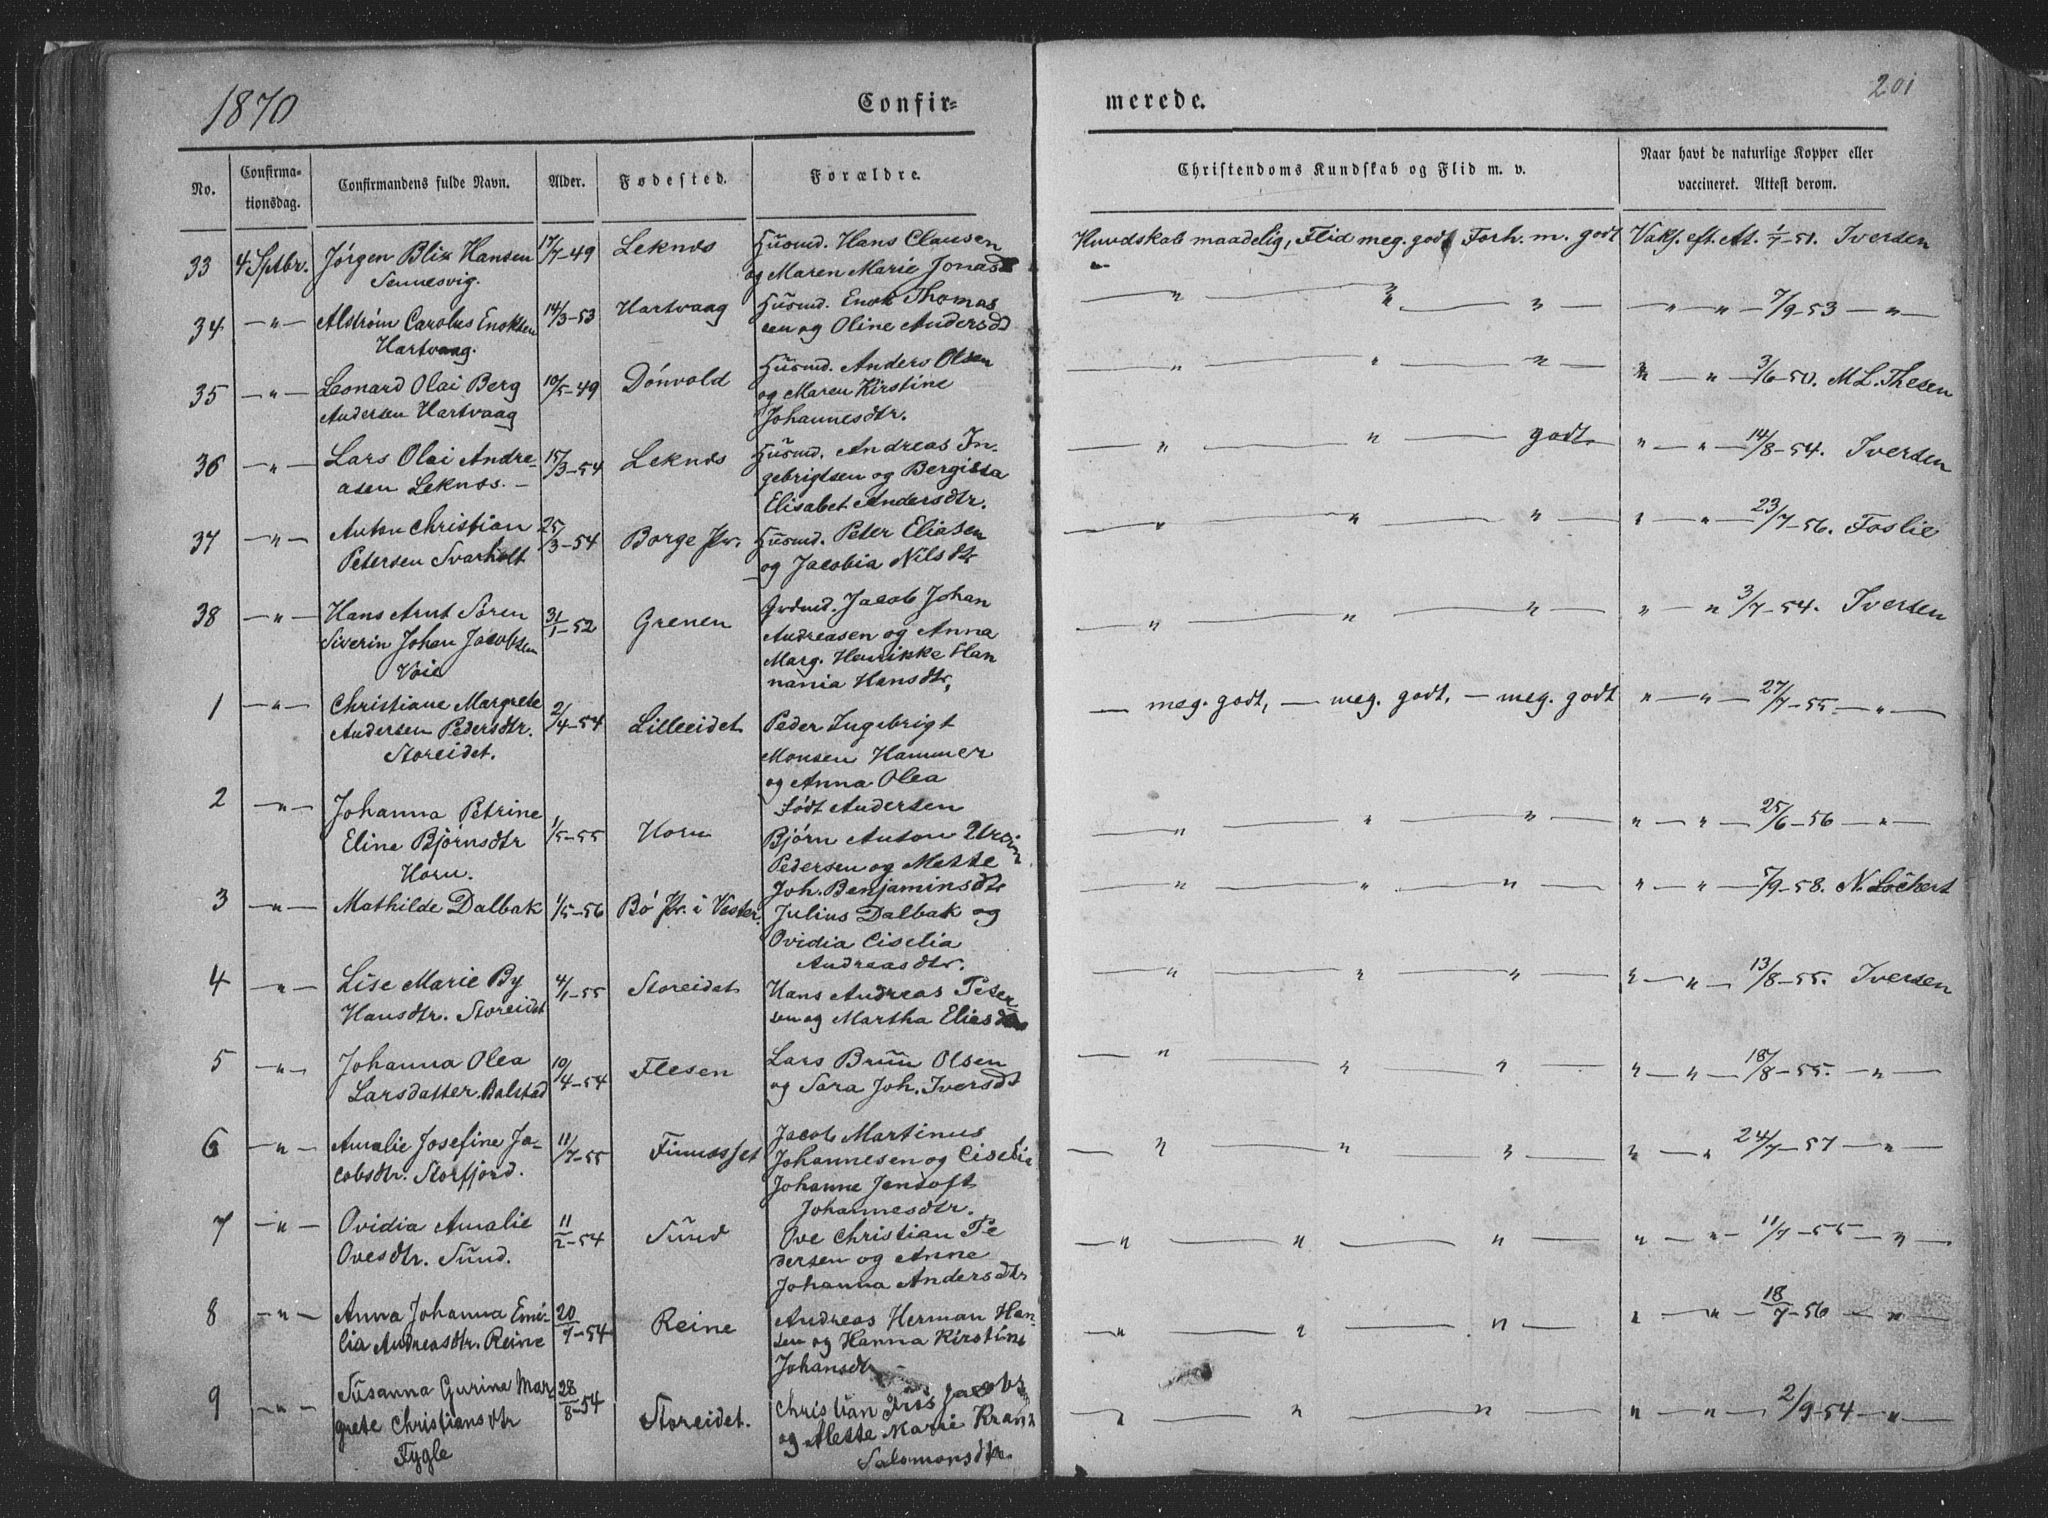 1870
Confir=
merede.
201
No.
Confirma-
tionsdag.
Confirmandens fulde Navn.
Alder.
Fødested.
Forældre.
Christendoms Kundskab og Flid m. v.
Naar havt de naturlige Kopper eller
vaccineret. Attest derom.
33 4 Sptbr. Jørgen Blix Hansen 17/7-49 Leknes Husmd. Hans Clausen Kundskab maadelig, Flid meg. godt Forh. m. godt Vaks. eft. At. 1/7-51. Iversen
Sennesvig. og Maren Marie Jonasd
34 —"— Alstrøm Carolus Enoksen 14/3-53 Hartvaag Husmd. Enok Thomas — " — " — " — " — " — 7/9-53 — " —
Hartvaag. sen og Oline Andersdt
35 —"— Leonard Olai Berg 10/5-49 Dønvold Husmd. Anders Olsen — " — " — " — " — " — 3/6-50. M L. Thesen
Andersen Hartvaag og Maren Kirstine
Johannesdtr.
36 —"— Lars Olai Andre- 15/3-54 Leknes Husmd. Andreas In- — " — " — godt. " — " — 14/8-54. Iversen
asen Leknes. — gebrigtsen og Bergitta
Elisabet Andersdtr.
37 —"— Anton Christian 25/3-54 Borge Pr. Husmd. Peter Eliasen — " — " — " — " — " — 23/7-56. Foslie
Petersen Svarholt og Jacobia Nilsdtr
38 —"— Hans Arnt Søren 31/1-52 Grenen Grdmd. Jacob Johan — " — " — " — " — " 3/7-54. Iversen
Siverin Johan Jacobsen Andreasen og Anna
Voie Marg. Henrikke Han
nania Hansdtr,
1 —"— Christiane Margrete 2/4-54 Lilleeidet Peder Ingebrigt — meg. godt, — meg. godt, — meg. godt " — " — 27/7-55 — " —
Andersen Pedersdtr. Monsen Hammer
Storeidet. og Anna Olea
født Andersen
2 —"— Johanna Petrine 1/5-55 Horn Bjørn Anton — " — " — " — " — " — 25/6-56 — " —
Eline Bjørnsdtr Pedersen og Mette
Horn. Joh. Benjaminsdtr
3 —"— Mathilde Dalbak 1/5-56 Bø Pr. i Vester. Julius Dalbak og — " — " — " — " — " — 5/9-58. N. Løchert
Ovidia Ciselia
Andreasdtr.
4 —"— Lise Marie By 4/1-55 Storeidet Hans Andreas Peter — " — " — " — " — " — 13/8-55. Iversen
Hansdtr. Storeidet sen og Martha Eliesd
5 —"— Johanna Olea 10/4-54 Flesen Lars Bruun Olsen — " — " — " — " — " — 18/8-55. — " —
Larsdatter Balstad og Sara Joh. Iversdt
6 —"— Amalie Josefine Ja- 11/7-55 Finnesset Jacob Martinus — " — " — " — " — " — 24/7-57 — " —
cobsdtr. Storfjord. Johannesen og Ciselia
Johanne Jentoft
Johannesdtr.
7 —"— Ovidia Amalie 11/2-54 Sund Ove Christian Pe — " — " — " — " — " — 11/7-55 — " —
Ovesdtr. Sund. dersen og Anne
Johanna Andersdtr
8 —"— Anna Johanna Emi- 20/7-54 Reine Andreas Herman Han- — " — " — " — " — " — 18/7-56 — " —
lia Andreasdtr. Reine sen og Hanna Kirstine
Johansdtr
9 —"— Susanna Gurina Mar 28/8-54 Storeidet. Christian Friis Jacobs — " — " — " — " — " — 2/9-54 — " —
grete Christiansdtr og Alette Marie Krane
Fygle Salomonsdtr.